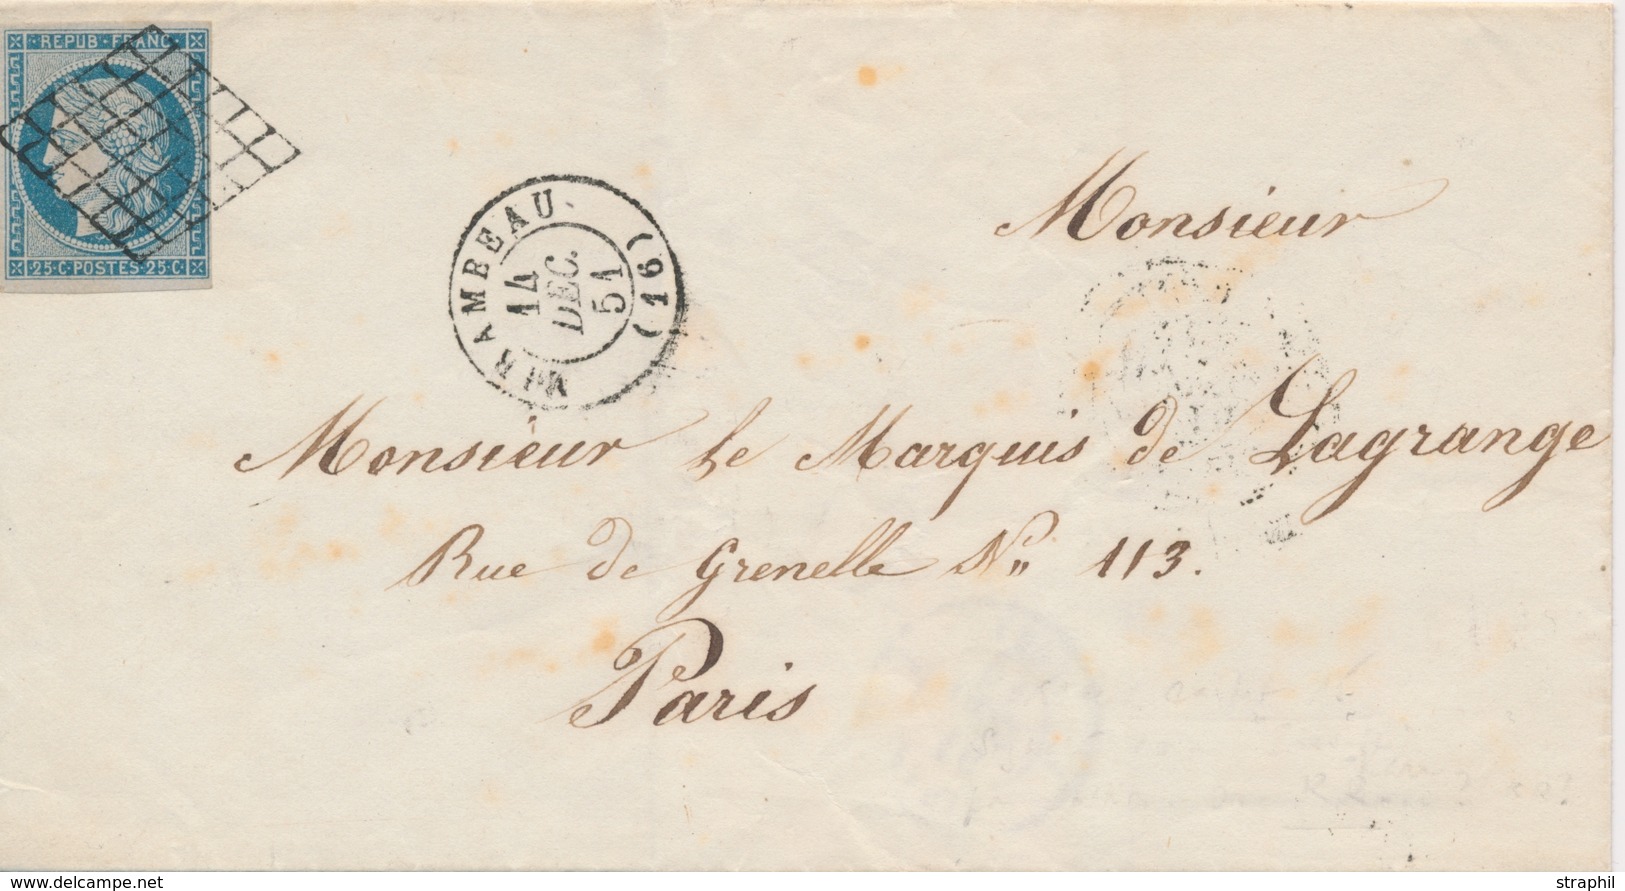 REPUB·FRANC·
25·C·POSTES·25·C·
MIRAMBEAU.
(16)
14
DEC.
51
Monsieur
Monsieur le Marquis de Lagrange
Rue de Grenelle No 113.
Paris
© www.delcampe.net
straphil